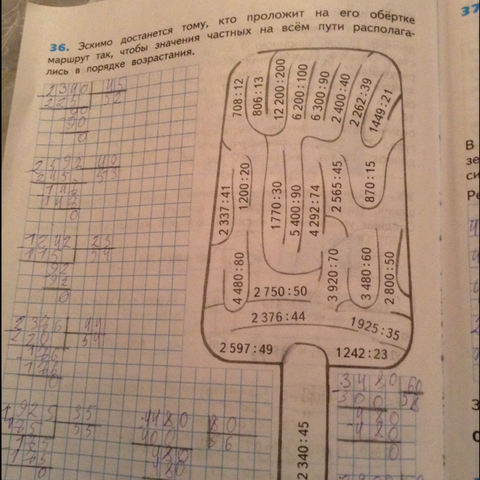 37
36. Эскимо достанется тому, кто проложит на его обёртке
маршрут так, чтобы значения частных на всём пути располага-
лись в порядке возрастания.
708:12
806:13
12 200:200
6 200:100
6 300:90
2 400:40
2 262:39
1449:21
2 337:41
1200:20
1770:30
5 400:90
4 292:74
2 565:45
870:15
4 480:80
2 750:50
3 920:70
3 480:60
2 800:50
2 376:44
1925:35
2 597:49
1242:23
2 340:45
2340 45
225 52
90
90
0
1242 23
115 54
92
92
0
2376 44
220 54
176
176
0
1925 35
175 55
175
175
0
4480 80
400 56
480
480
3480 60
300 58
480
480
0